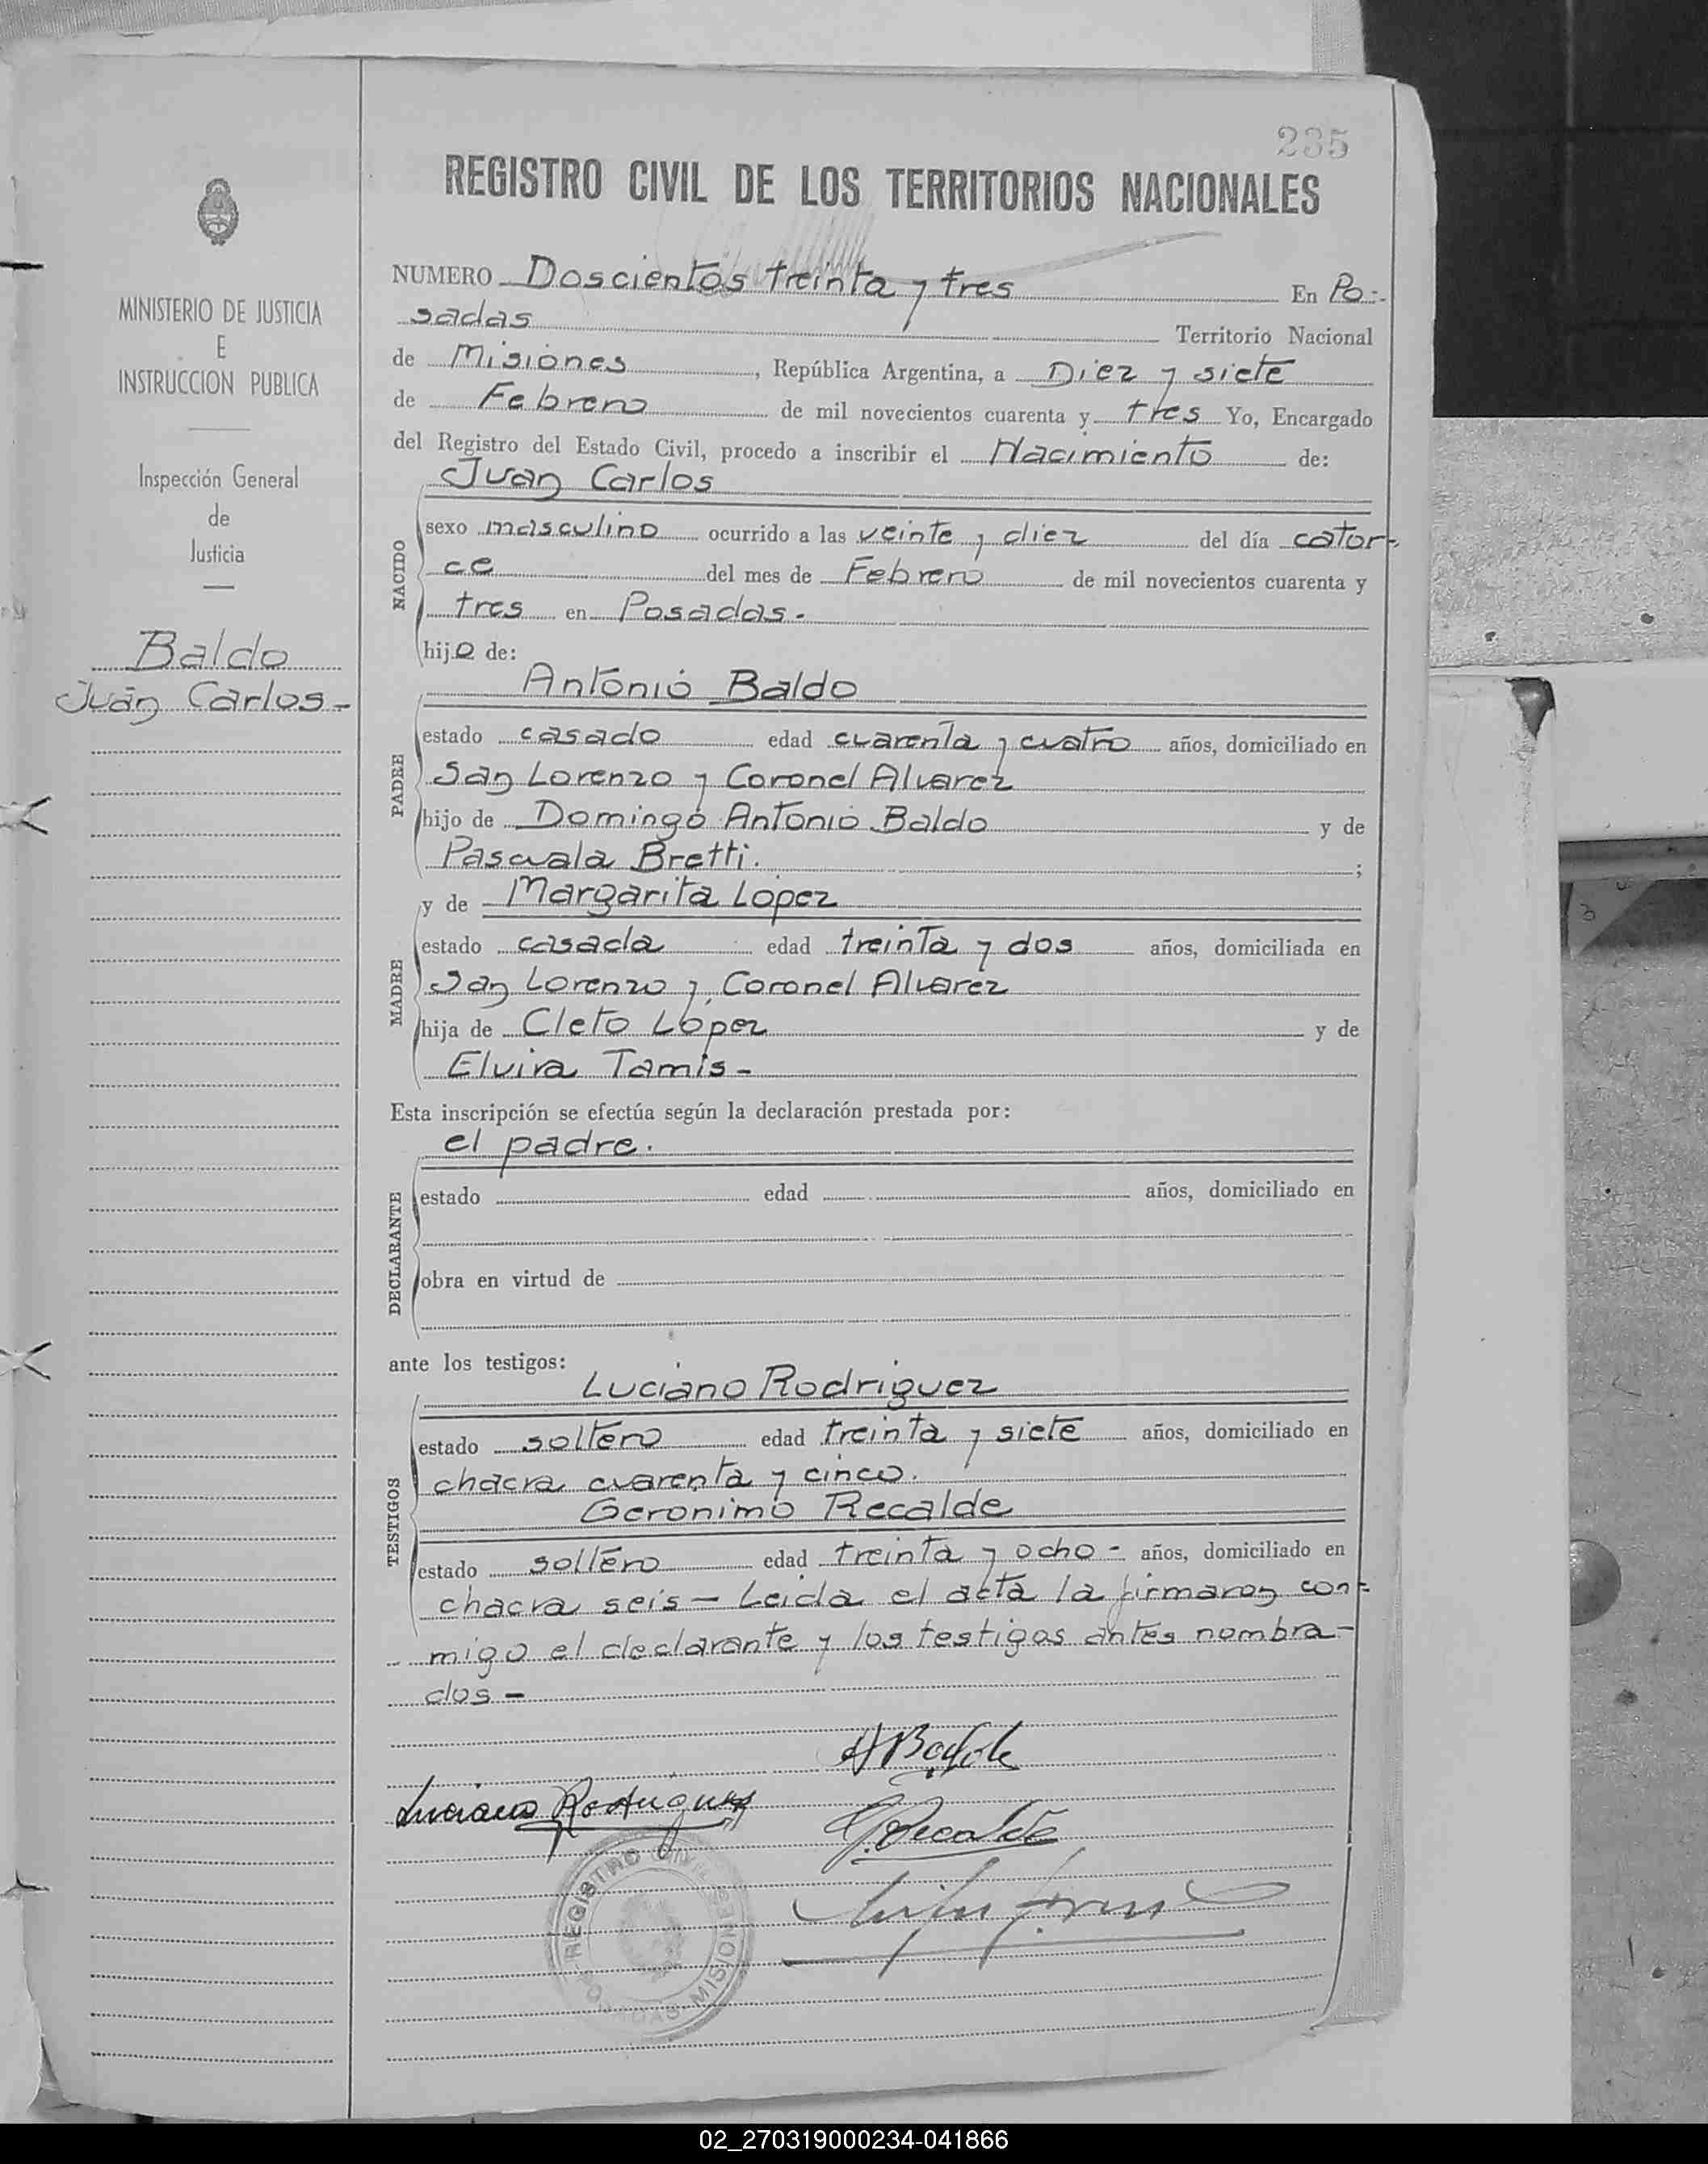 235
REGISTRO CIVIL DE LOS TERRITORIOS NACIONALES
MINISTERIO DE JUSTICIA
E
INSTRUCCION PUBLICA
Inspección General
de
Justicia
Baldo
Juan Carlos-
NUMERO Doscientos treinta y tres En Po-
sadas Territorio Nacional
de Misiones, República Argentina, a Diez y siete
de Febrero de mil novecientos cuarenta y tres Yo, Encargado
del Registro del Estado Civil, procedo a inscribir el Nacimiento de:
Juan Carlos
NACIDO
sexo masculino ocurrido a las veinte y diez del día cator-
ce del mes de Febrero de mil novecientos cuarenta y
tres en Posadas.-
hijo de:
Antonio Baldo
PADRE
estado casado edad cuarenta y cuatro años, domiciliado en
San Lorenzo y Coronel Alvarez
hijo de Domingo Antonio Baldo y de
Pascuala Bretti. ;
y de Margarita Lopez
MADRE
estado casada edad treinta y dos años, domiciliada en
San Lorenzo y Coronel Alvarez
hija de Cleto Lopez y de
Elvira Tamis-
Esta inscripción se efectúa según la declaración prestada por:
el padre.
DECLARANTE
estado edad años, domiciliado en
obra en virtud de
ante los testigos:
Luciano Rodriguez
TESTIGOS
estado soltero edad treinta y siete años, domiciliado en
chacra cuarenta y cinco.
Geronimo Recalde
estado soltero edad treinta y ocho- años, domiciliado en
chacra seis- Leida el acta la firmaron con-
migo el declarante y los testigos antes nombra-
dos-
Luciano Rodriguez
G Recalde
REGISTRO CIVIL
MISIONES
02_270319000234-041866